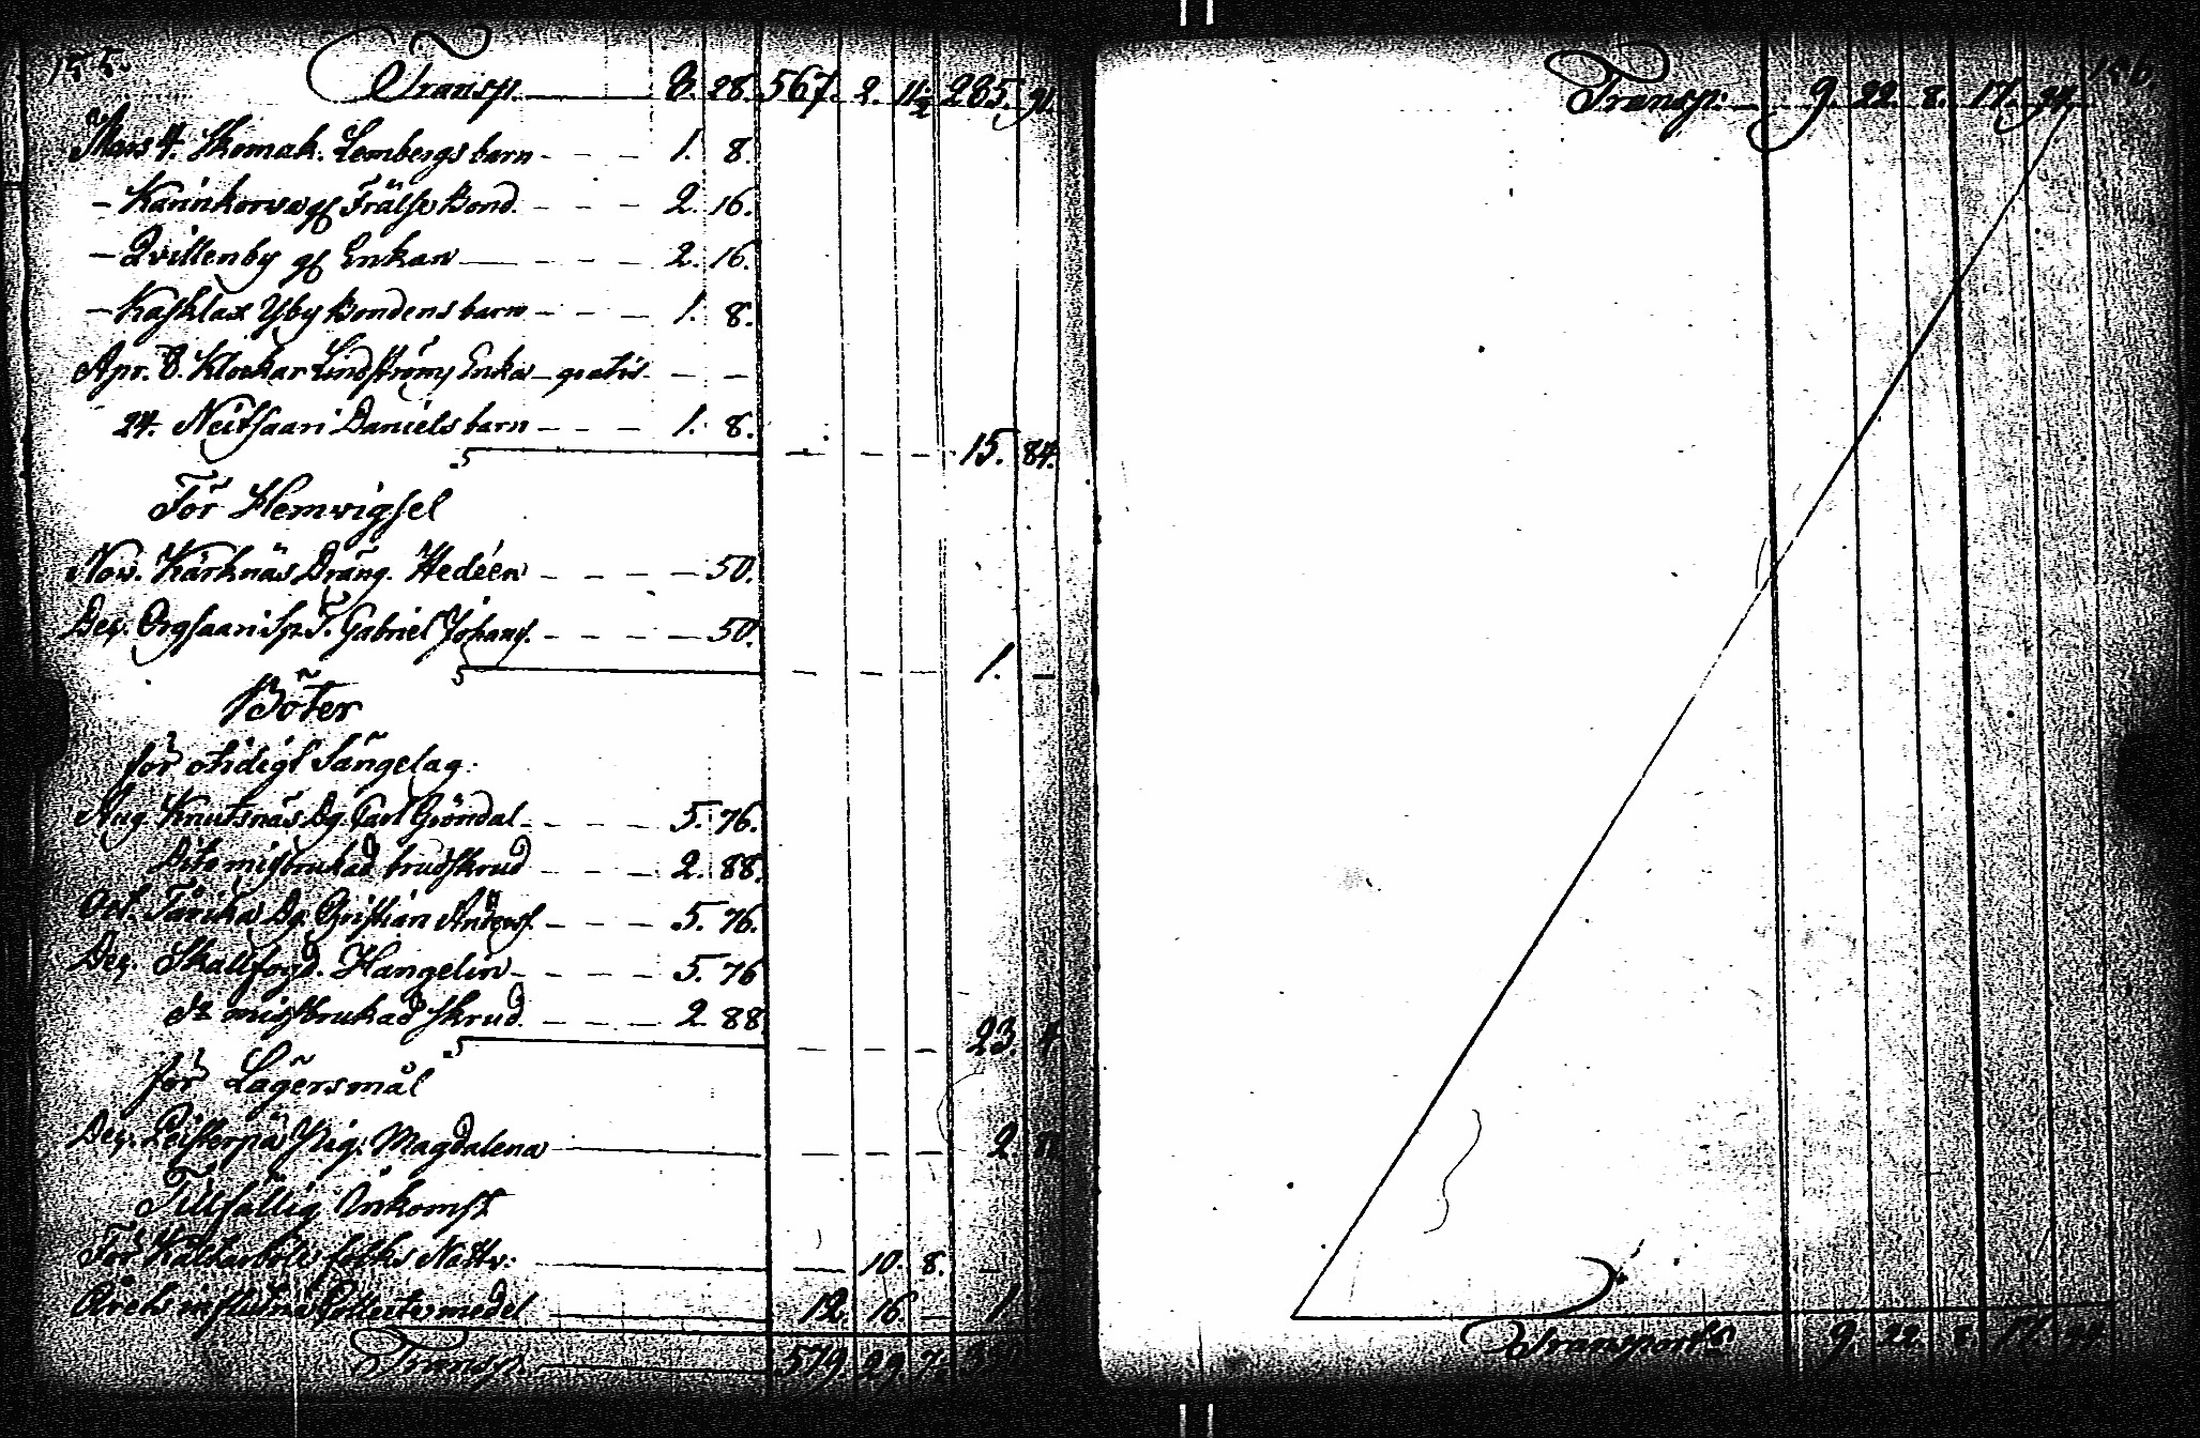 155.
Transp. 8. 28. 567. 2. 11½ 285. 91
Mars 4. Skomak. Lembergs barn - - - 1. 8.
- Karinkorva gf Frälse Bond. - - - 2. 16.
- Qvillenby gf Enkan - - - 2. 16.
- Kasklax Yby Bondens barn - - - 1. 8.
Apr. 8. Klockar Lindströms Enka - gratis - -
24. Neitsaari Daniels barn - - - 1. 8.
15. 84.
För Hemvigsel
Nov. Kärknäs Dräng. Hedéen - - - - 50.
Dec. Orgsaari Sp. T. Gabriel Johans. - - - - 50.
1. -
Böter
för otidigt Sängelag:
Aug. Knutsnäs Dg. Carl Gröndal - - - 5. 76.
Dito misbrukad brudskrud - - - 2. 88.
Oct. Dg. Christian Anders. - - - 5. 76.
Dec. Skallfogd. Hangelin - - - - 5. 76
do missbrukad skrud - - - 2 88
23. 4
för Lägersmål
Dec. Peisterpä Pig. Magdalena - - - 2
Tillfällig Inkomst
För folks Nattv: 10. 8. -
Årets influtna Collecter medel 12. 16. - 1
Transp. 579. 29. 7.
156.
Transp. - 9. 22. 8. 17. 24.
Transport 9. 22. 8. 17.